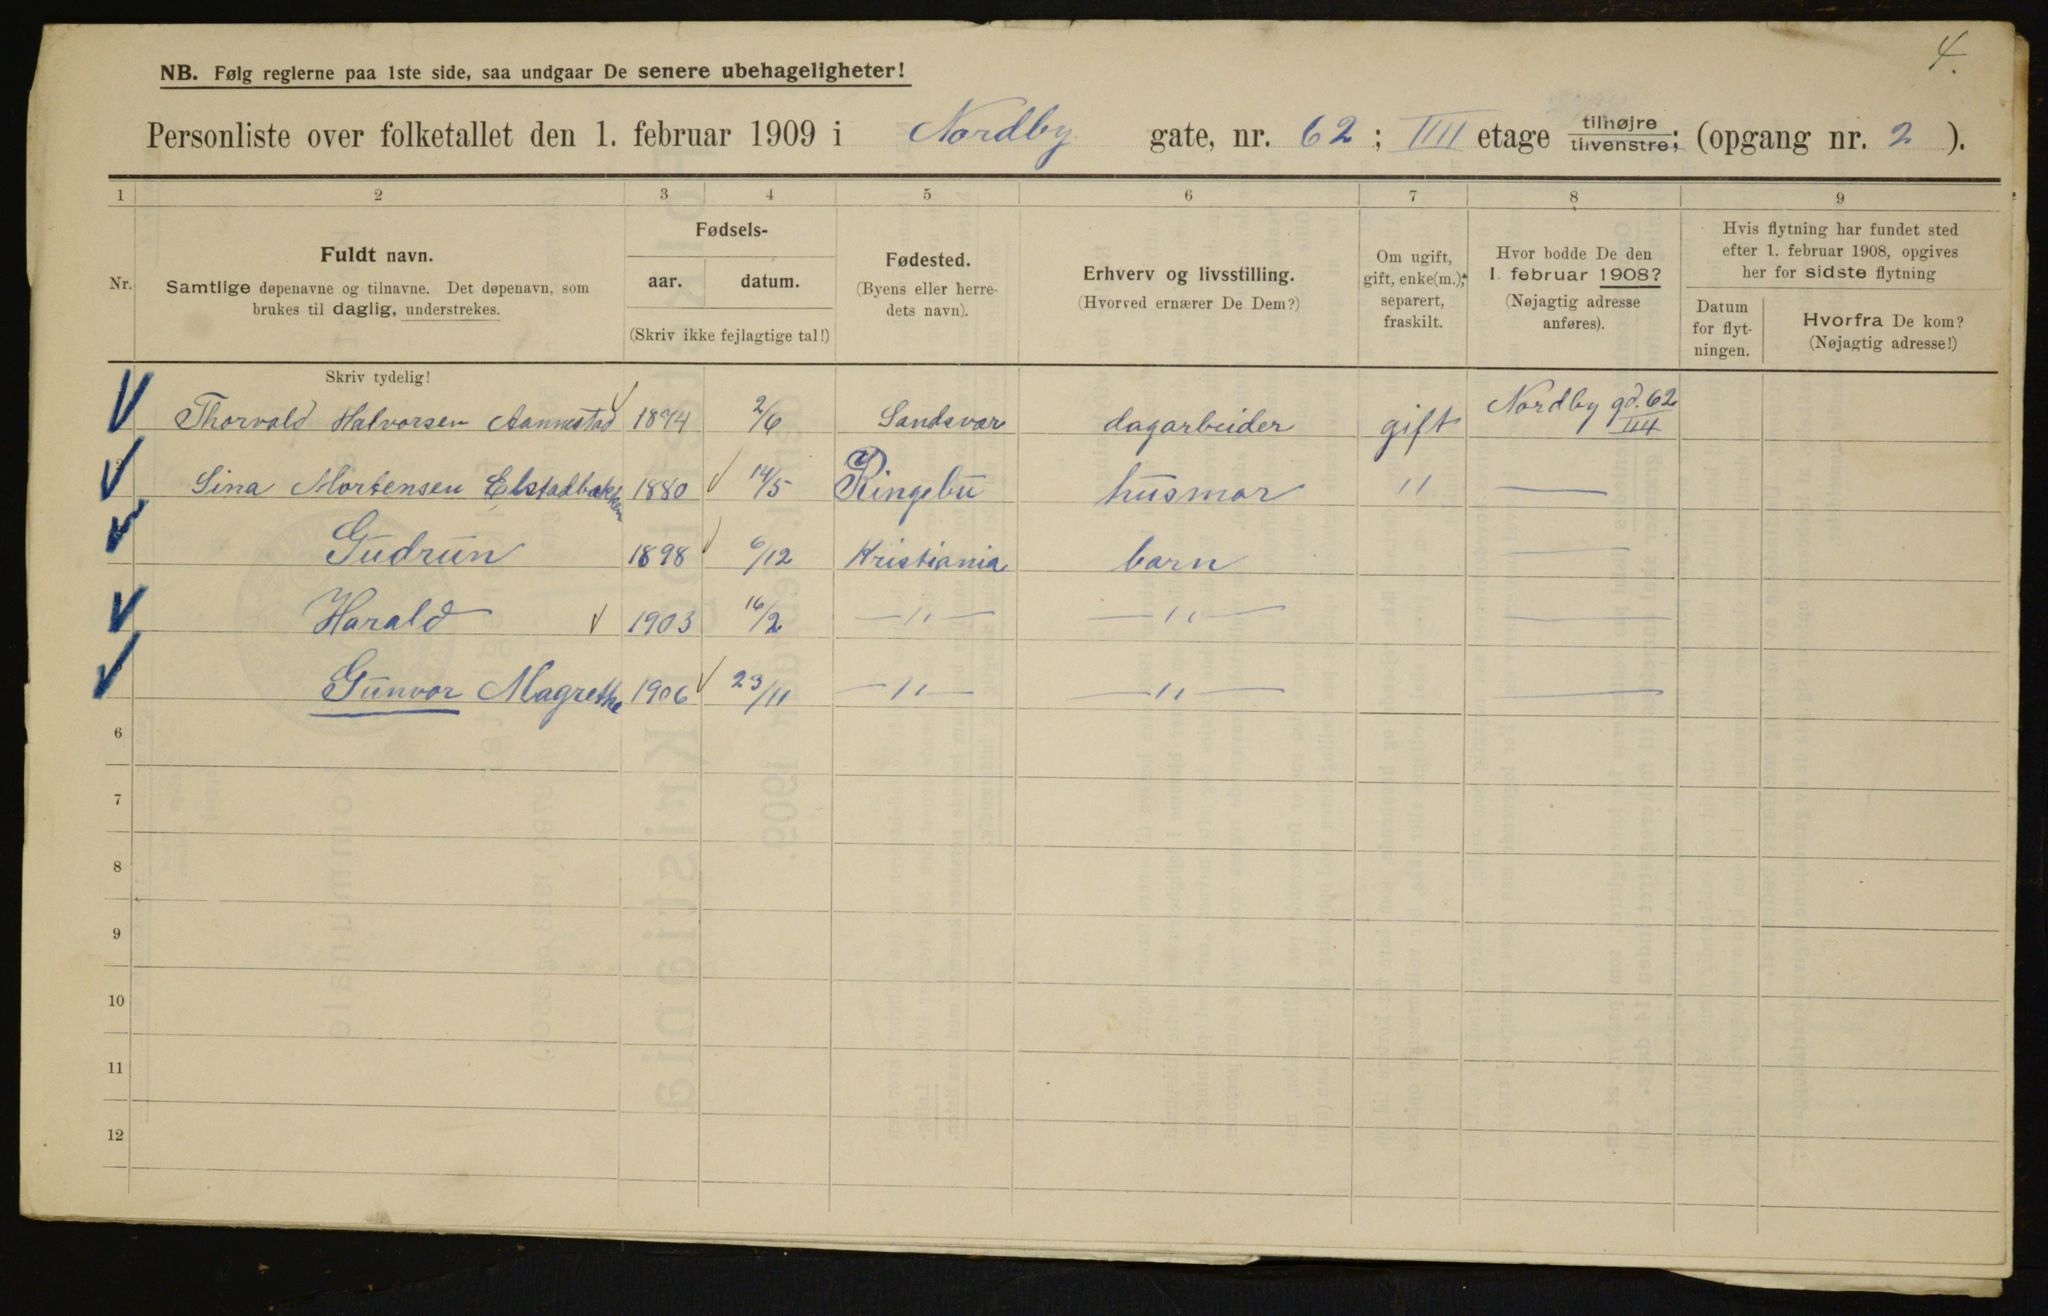 4.
NB. Følg reglerne paa 1ste side, saa undgaar De senere ubehageligheter!
Personliste over folketallet den 1. februar 1909 i Nordby gate, nr. 62 ; IIII etage tilhøjre / tilvenstre; (opgang nr. 2 ).
1 2 3 4 5 6 7 8 9
Nr.
Fuldt navn.
Samtlige døpenavne og tilnavne. Det døpenavn, som
brukes til daglig, understrekes.
Fødsels-
aar. datum.
(Skriv ikke fejlagtige tal!)
Fødested.
(Byens eller herre-
dets navn).
Erhverv og livsstilling.
(Hvorved ernærer De Dem?)
Om ugift,
gift, enke(m.),
separert,
fraskilt.
Hvor bodde De den
1. februar 1908?
(Nøjagtig adresse
anføres).
Hvis flytning har fundet sted
efter 1. februar 1908, opgives
her for sidste flytning
Datum
for flyt-
ningen.
Hvorfra De kom?
(Nøjagtig adresse!)
Skriv tydelig!
Thorvald Halvorsen Aannestad 1874 2/6 Sandsvær dagarbeider gift Nordby gd. 62 IIII
Sina Mortensen Elstadbakken 1880 14/5 Ringebu husmor " —
Gudrun 1898 6/12 Kristiania barn —
Harald 1903 16/2 —"— —"— —
Gunvor Magrethe 1906 23/11 —"— —"— —
6
7
8
9
10
11
12